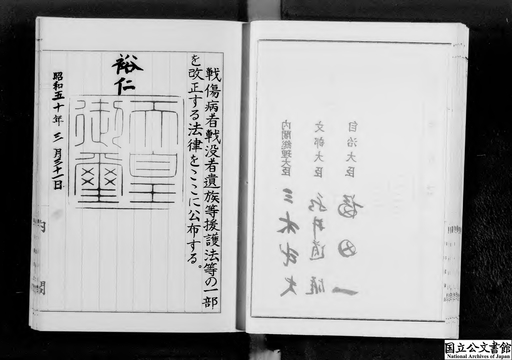 自治大臣 福田一
文部大臣 永井道雄
内閣総理大臣 三木武夫
戦傷病者戦没者遺族等援護法等の一部
を改正する法律をここに公布する。
裕仁
天皇
御璽
昭和五十年三月三十一日
内閣
国立公文書館
National Archives of Japan